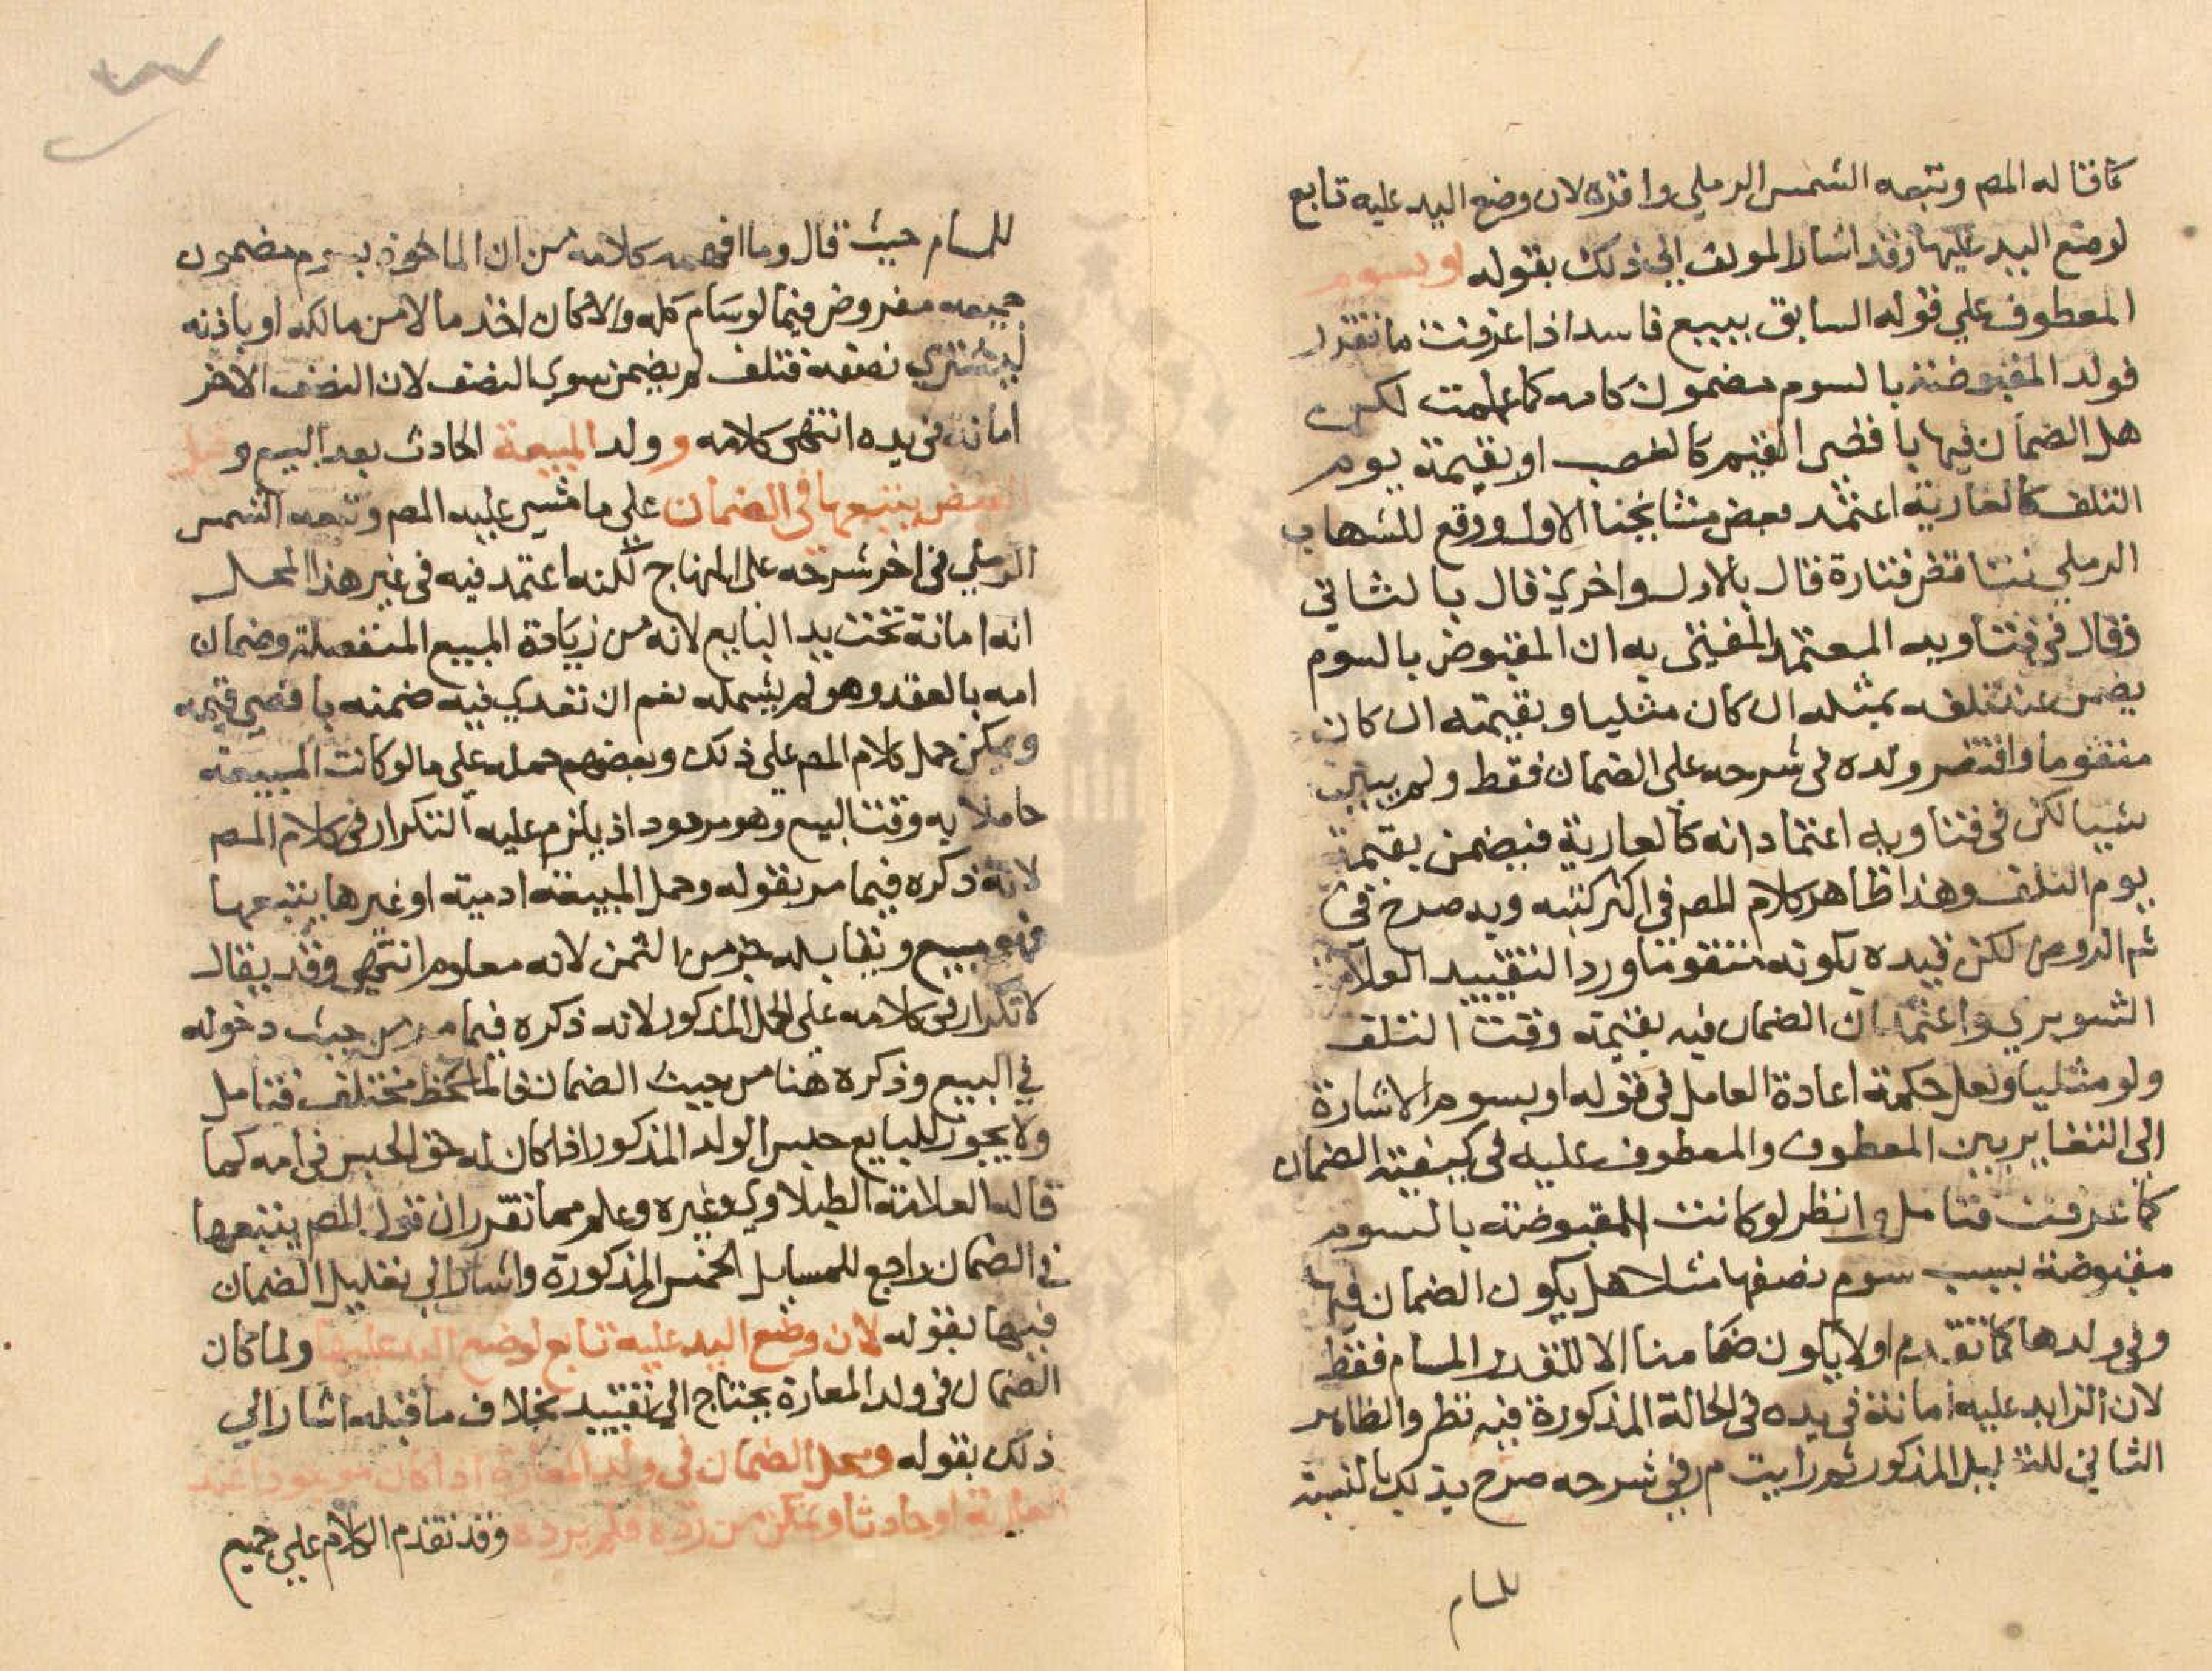 كما قاله المص وتبعه الشمس الرملي واقره لان وضع اليد عليه تابع
لوضع اليد عليها وقد اشار المولف الي ذلك بقوله او بسوم
المعطوف علي قوله السابق ببيع فاسد اذا عرفت ما تقرر
فولد المقبوضة بالسوم مضمون كامه كما علمت لكن
هل الضمان فيها باقصى القيم كالغصب او بقيمة يوم
التلف كالعارية اعتمد بعض مشايخنا الاول ووقع للشهاب
الرملي تناقض فتارة قال بالاول واخري قال بالثاني
وقال في فتاويه المعتمد المفتى به ان المقبوض بالسوم
يضمن عند تلفه بمثله ان كان مثليا وبقيمته ان كان
متقوما واقتصر ولده في شرحه على الضمان فقط ولم يبين
شيا لكن في فتاويه اعتماد انه كالعارية فيضمن بقيمة
يوم التلف وهذا ظاهر كلام المص في اكثر كتبه وبه صرح في
شم الروض لكن قيده بكونه متقوما ورد التقييد العلامة
الشوبري واعتمد ان الضمان فيه بقيمته وقت التلف
ولو مثليا ولعل حكمة اعادة العامل في قوله او بسوم الاشارة
الى التغاير بين المعطوف والمعطوف عليه في كيفية الضمان
كما عرفت فتامل وانظر لو كانت المقبوضة بالسوم
مقبوضة بسبب سوم نصفها مثلا هل يكون الضمان فيها
وفي ولدها كما تقدم او لا يكون ضامنا الا للقدر المسام فقط
لان الزايد عليه امانة في يده في الحالة المذكورة فيه نظر والظاهر
الثاني للتعليل المذكور ثم رايت م ر في شرحه صرح بذلك بالنسبة
للمسام
للمسام حيث قال وما افهمه كلامه من ان الماخوذ بسوم مضمون
جميعه مفروض فيما لو سام كله والا كان اخذ مالا من مالكه او باذنه
ليشتري نصفه فتلف لم يضمن سوي النصف لان النصف الاخر
امانة في يده انتهى كلامه و ولد المبيعة الحادث بعد البيع و قبل
القبض يتبعها في الضمان علي ما مشى عليه المص وتبعه الشمس
الرملي في اخر شرحه على المنهاج لكنه اعتمد فيه في غير هذا المحل
انه امانة تحت يد البايع لانه من زيادة المبيع المنفصلة وضمان
امه بالعقد وهو لم يشمله نعم ان تعدي فيه ضمنه باقصي قيمه
ويمكن حمل كلام المص على ذلك وبعضهم حمله علي ما لو كانت المبيعة
حاملا به وقت البيع وهو مردود اذ يلزم عليه التكرار في كلام المص
لانه ذكره فيما مر بقوله وحمل المبيعة ادمية او غيرها يتبعها
فهو مبيع ويقابله جز من الثمن لانه معلوم انتهى وقد يقال
لا تكرار في كلامه على الحمل المذكور لانه ذكره فيما مر من حيث دخوله
في البيع وذكره هنا من حيث الضمان فالملحظ مختلف فتامل
ولا يجوز للبايع حبس الولد المذكور اذا كان له حق الحبس في امه كما
قاله العلامة الطبلاوي وغيره وعلم مما تقرر ان قول المص يتبعها
في الضمان راجع للمسايل الخمس المذكورة واشار الي تعليل الضمان
فيها بقوله لان وضع اليد عليه تابع لوضع اليد عليها ولما كان
الضمان في ولد المعارة يحتاج الى تقييد بخلاف ما قبله اشار الي
ذلك بقوله ومحل الضمان في ولد المعارة اذا كان موجودا عند
العارية او حادثا وتمكن من رده فلم يرده وقد تقدم الكلام علي جميع